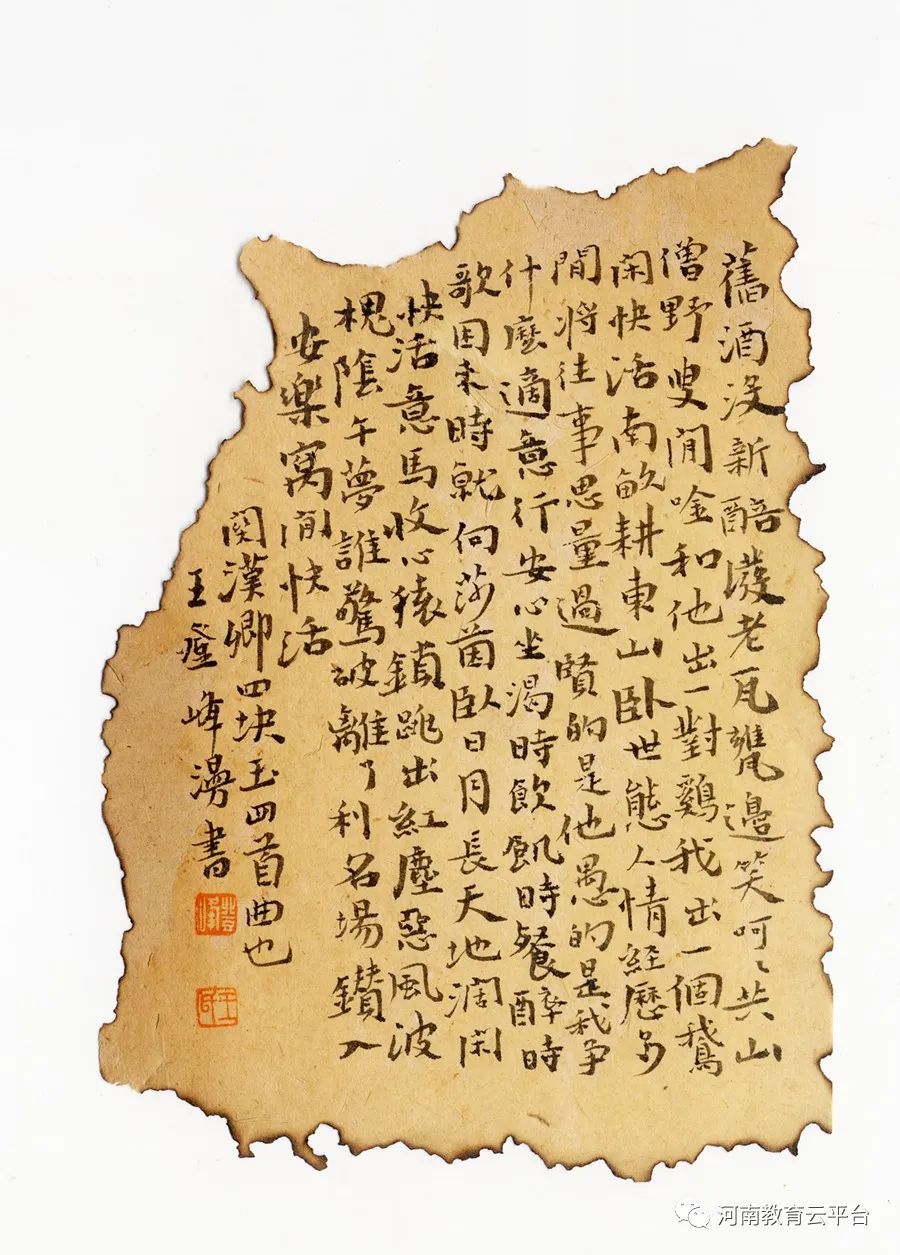 舊酒沒新醅潑老瓦甕邊笑呵〻共山
僧野叟閒唫和他出一對鷄我出一個鵞
閑快活南畝耕東山卧世態人情經歷多
閒將往事思量過賢的是他愚的是我爭
什麼適意行安心坐渴時飲飢時餐醉時
歌困來時就向莎茵臥日月長天地濶閑
快活意馬收心猿鎖跳出紅塵惡風波
槐陰午夢誰驚破離了利名場鑽入
安樂窩閒快活
関漢卿四块玉四首曲也
王登峰漫書
河南教育云平台